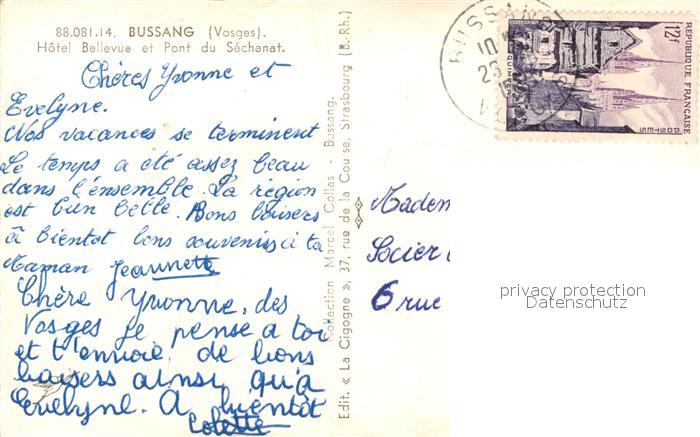 88.081.14. BUSSANG (Vosges).
Hôtel Bellevue et Pont du Séchenat.
Chères Yvonne et
Evelyne.
Nos vacances se terminent
Le temps a été assez beau
dans l'ensemble. La région
est bien belle. Bons baisers
à bientot bons souvenirs à ta
Maman Jeannette
Chère Yvonne, des
Vosges je pense a toi
et t'envoie, de bons
baisers ainsi qu'a
Evelyne. A bientôt
Colette
Collection Marcel Collas - Bussang.
Edit. « La Cigogne », 37, rue de la Course, Strasbourg (B.-Rh.)
BUSSANG
VOSGES
12f
REPUBLIQUE FRANÇAISE
POSTES
QUIMPER
Madem
6 rue
privacy protection
Datenschutz